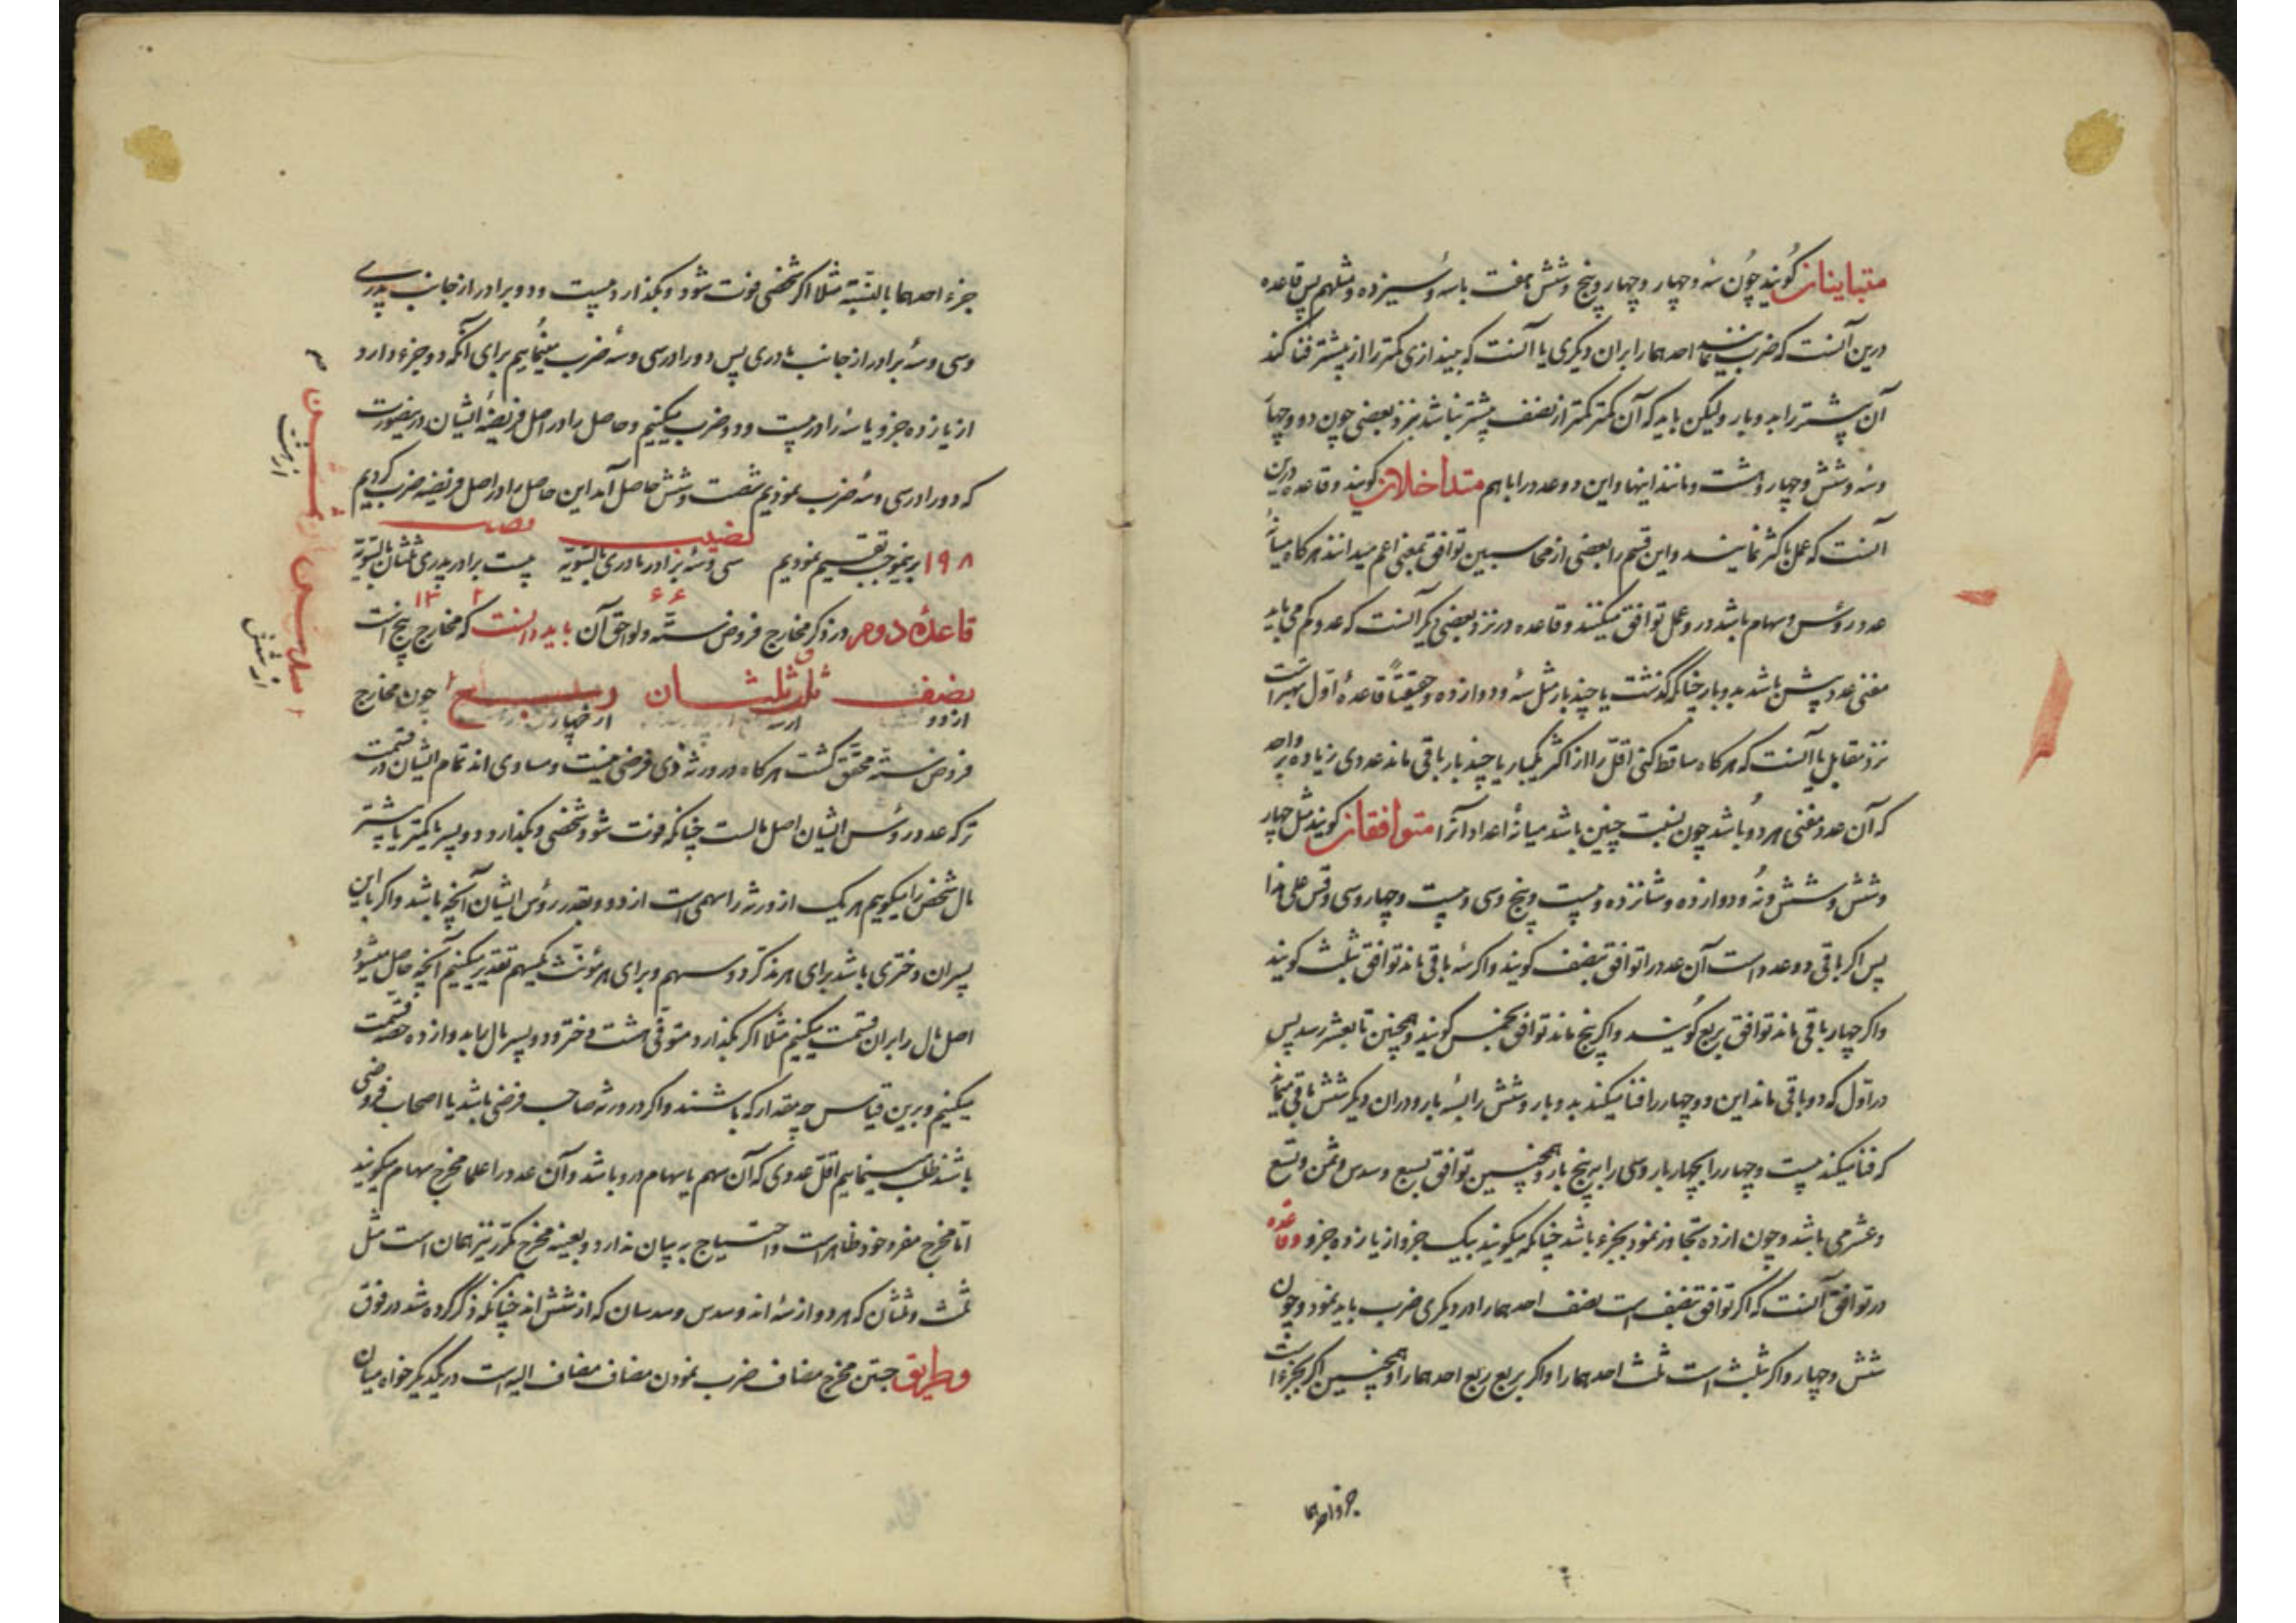 متباینان کویند چون سه و چهار و چهار و پنج و شش هفت باسه و سیزده و مثلهم پس قاعده
درین آنست که ضرب نمایند احدهما را بران دیکری یا آنست که بیندازی کمتر را از بیشتر فنا کند
آن بیشتر را بدو بار ولیکن باید که آن کمتر کمتر از نصف بیشتر نباشد نزد بعضی چون دو و چهار
و سه و شش و چهار و هشت و مانند اینها و این دو عدد را با هم متداخلان کویند و قاعده درین
آنست که عمل باکثر نمایند و این قسم را بعضی از محاسبین توافق بمعنی اعم میدانند هرکاه میانه
عدد رؤس و سهام باشد در و عمل توافق میکنند و قاعده در نزد بعضی دیکر آنست که عدد کم می باید
مفنی عدد بیش باشد بدو بار چنانکه کذشت یا چند بار مثل سه و دوازده و حقیقتاً قاعده اول بهتر است
نزد مقابل یا آنست که هرکاه ساقط کنی اقل را از اکثر یکبار یا چند بار باقی ماند عددی زیاده بر واحد
که آن عدد مفنی هر دو باشد چون نسبت چنین باشد میانه اعداد آنرا متوافقان کویند مثل چهار
و شش و شش و نه و دوازده و شانزده و بیست و پنج و سی و بیست و چهار و سی و قس علی هذا
پس اکر باقی دو عدد است آن عدد را توافق بنصف کویند و اکر سه باقی ماند توافق بثلث کویند
و اکر چهار باقی ماند توافق بربع کویند و اکر پنج ماند توافق بخمس کویند و همچنین تا بعشر رسد پس
در اول که دو باقی ماند این دو چهار را فنا میکند بدو بار و شش را بسه بار و در ان دیکر شش باقی میماند
که فنا میکند بیست و چهار را بچهار بار و سی را به پنج بار و همچنین توافق بسبع و سدس و ثمن و تسع
و عشر می باشد و چون از ده تجاوز نمود بجزء باشد چنانکه میکویند بیک جزو از یازده جزو و قاعده
در توافق آنست که اکر توافق بنصف است نصف احدهما را در دیکری ضرب باید نمود و چون
شش و چهار و اکر بثلث است ثلث احدهما را و اکر بربع ربع احدهما را و همچنین اکر بجزء است
جزء احدهما
جزء احدهما بالنسبة مثلا اکر شخصی فوت شود و بکذارد بیست و دو برادر از جانب پدری
و سی و سه برادر از جانب مادری پس دو را در سی و سه ضرب مینماییم برای آنکه دو جزء دارد
از یازده جزو یا سه را در بیست و دو ضرب میکنیم و حاصل را در اصل فریضه ایشان درینصورت
که دو را در سی و سه ضرب نمودیم شصت و شش حاصل آمد این حاصل را در اصل فریضه ضرب کردیم
۱۹۸ برینموجب تقسیم نمودیم نصیب سی و سه برادر مادری بالسویة نصیب بیست برادر پدری ثلثان بالسویة
۶۶ ۱۳۲
قاعده دوم در ذکر مخارج فروض سته و لواحق آن باید دانست که مخارج پنج است
نصف ثلث ثلثان ربع چون مخارج
از دو از سه از چهار
ثمن
از هشت
سدس
از شش
فروض سته محقق کشت هرکاه در ورثه ذی فرضی نیست و مساوی اند تمام ایشان در قسمت
ترکه عدد رؤس ایشان اصل مالست چنانکه فوت شود شخصی و بکذارد دو پسر یا کمتر یا بیشتر
مال شخص را میکوییم هر یک از ورثه را سهمی است از دو و بقدر رؤس ایشان آنچه باشد و اکر با این
پسران دختری باشد برای هر مذکر دو سهم و برای هر مؤنث یکسهم تقدیر میکنیم آنچه حاصل میشود
اصل مال را بران قسمت میکنیم مثلا اکر بکذارد متوفی هشت دختر و دو پسر مال را بدوازده حصه قسمت
میکنیم و برین قیاس هر چه مقدار که باشند و اکر در ورثه صاحب فرضی باشد یا اصحاب فروضی
باشند طلب مینماییم اقل عددی که آن سهم یا سهام درو باشد و آن عدد را علما مخرج سهام میکویند
اما مخرج مفرد خود ظاهر است و احتیاج به بیان ندارد و بعینه مخرج مکرر نیز همان است مثل
ثلث و ثلثان که هر دو از سه اند و سدس و سدسان که از شش اند چنانکه ذکر کرده شد در فوق
وطریق جستن مخرج مضاف ضرب نمودن مضاف مضاف الیه است در یکدیکر خواه میان